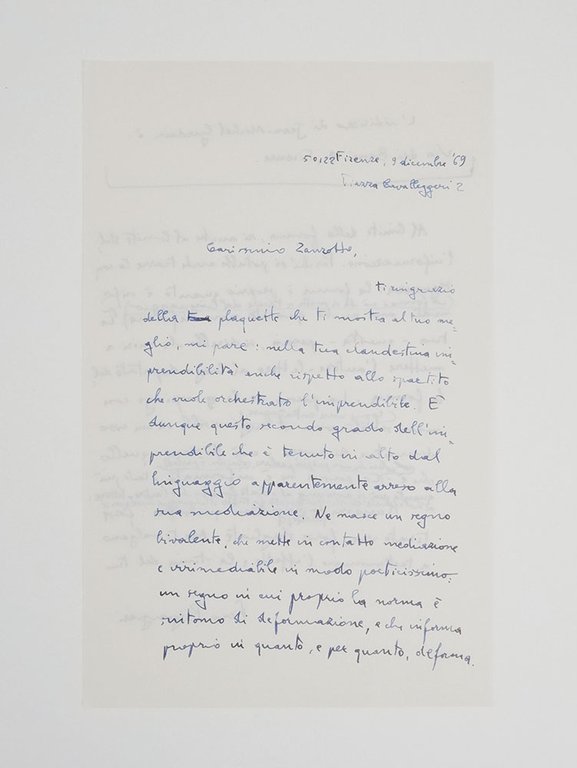 50122 Firenze, 9 dicembre '69
Piazza Cavalleggeri 2
Carissimo Zanzotto,
ti ringrazio
della plaquette che ti mostra al tuo me-
glio, mi pare: nella tua clandestina im-
prendibilità anche rispetto allo spartito
che vuole orchestrato l'imprendibile. È
dunque questo secondo grado dell'im-
prendibile che è tenuto in alto dal
linguaggio apparentemente arreso alla
sua mediazione. Ne nasce un segno
bivalente, che mette in contatto mediazione
e irrimediabile in modo poeticissimo:
un segno in cui proprio la norma è
sintomo di deformazione, e che informa
proprio in quanto, e per quanto, deforma.